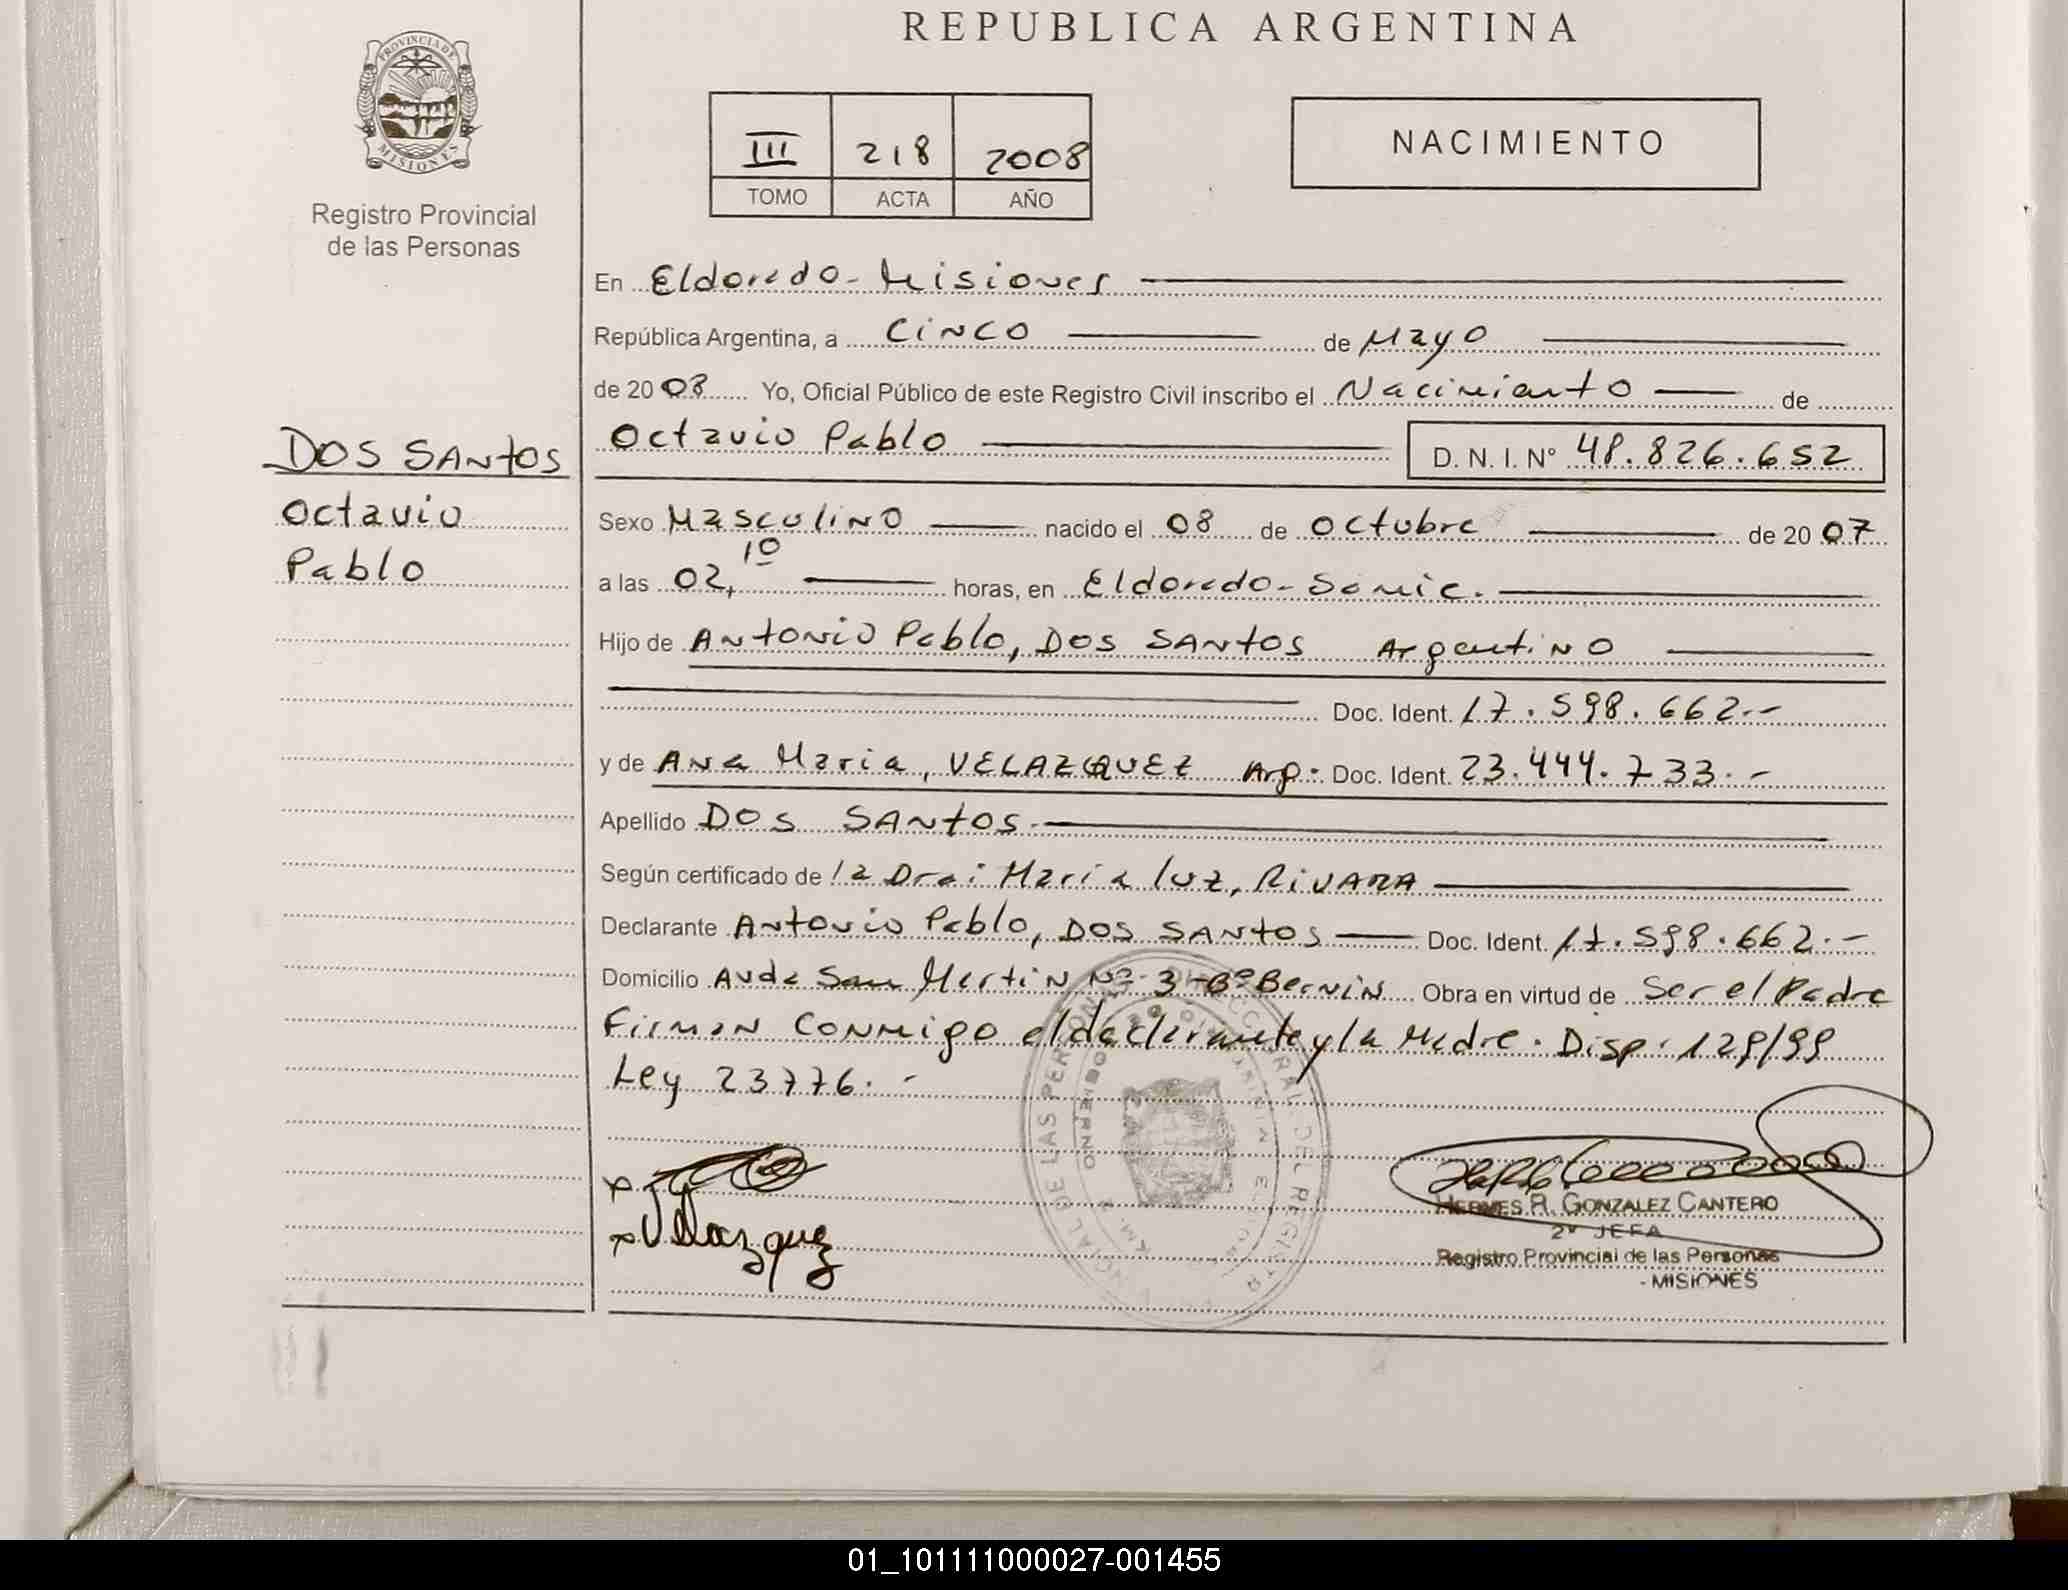 REPUBLICA ARGENTINA
PROVINCIA DE
MISIONES
Registro Provincial
de las Personas
III 218 2008
TOMO ACTA AÑO
NACIMIENTO
DOS SANTOS
Octavio
Pablo
En Eldorado - Misiones
República Argentina, a Cinco de Mayo
de 2008 Yo, Oficial Público de este Registro Civil inscribo el Nacimiento de
Octavio Pablo D. N. I. N° 48.826.652
Sexo Masculino nacido el 08 de Octubre de 2007
a las 02,10 horas, en Eldorado - Samic.
Hijo de Antonio Pablo, DOS SANTOS Argentino
Doc. Ident. 17.598.662.-
y de Ana Maria, VELAZQUEZ Arg. Doc. Ident. 23.444.733.-
Apellido DOS SANTOS.
Según certificado de la Dra: Maria luz, RIVARA
Declarante Antonio Pablo, DOS SANTOS Doc. Ident. 17.598.662.-
Domicilio Avda San Martin Nº 3 - Bº Bernin Obra en virtud de Ser el Padre
Firman Conmigo el declarante y la Madre. Disp. 129/99
Ley 23776.-
x
x Velazquez
HERMES R. GONZALEZ CANTERO
2º JEFA
Registro Provincial de las Personas
- MISIONES
01_101111000027-001455